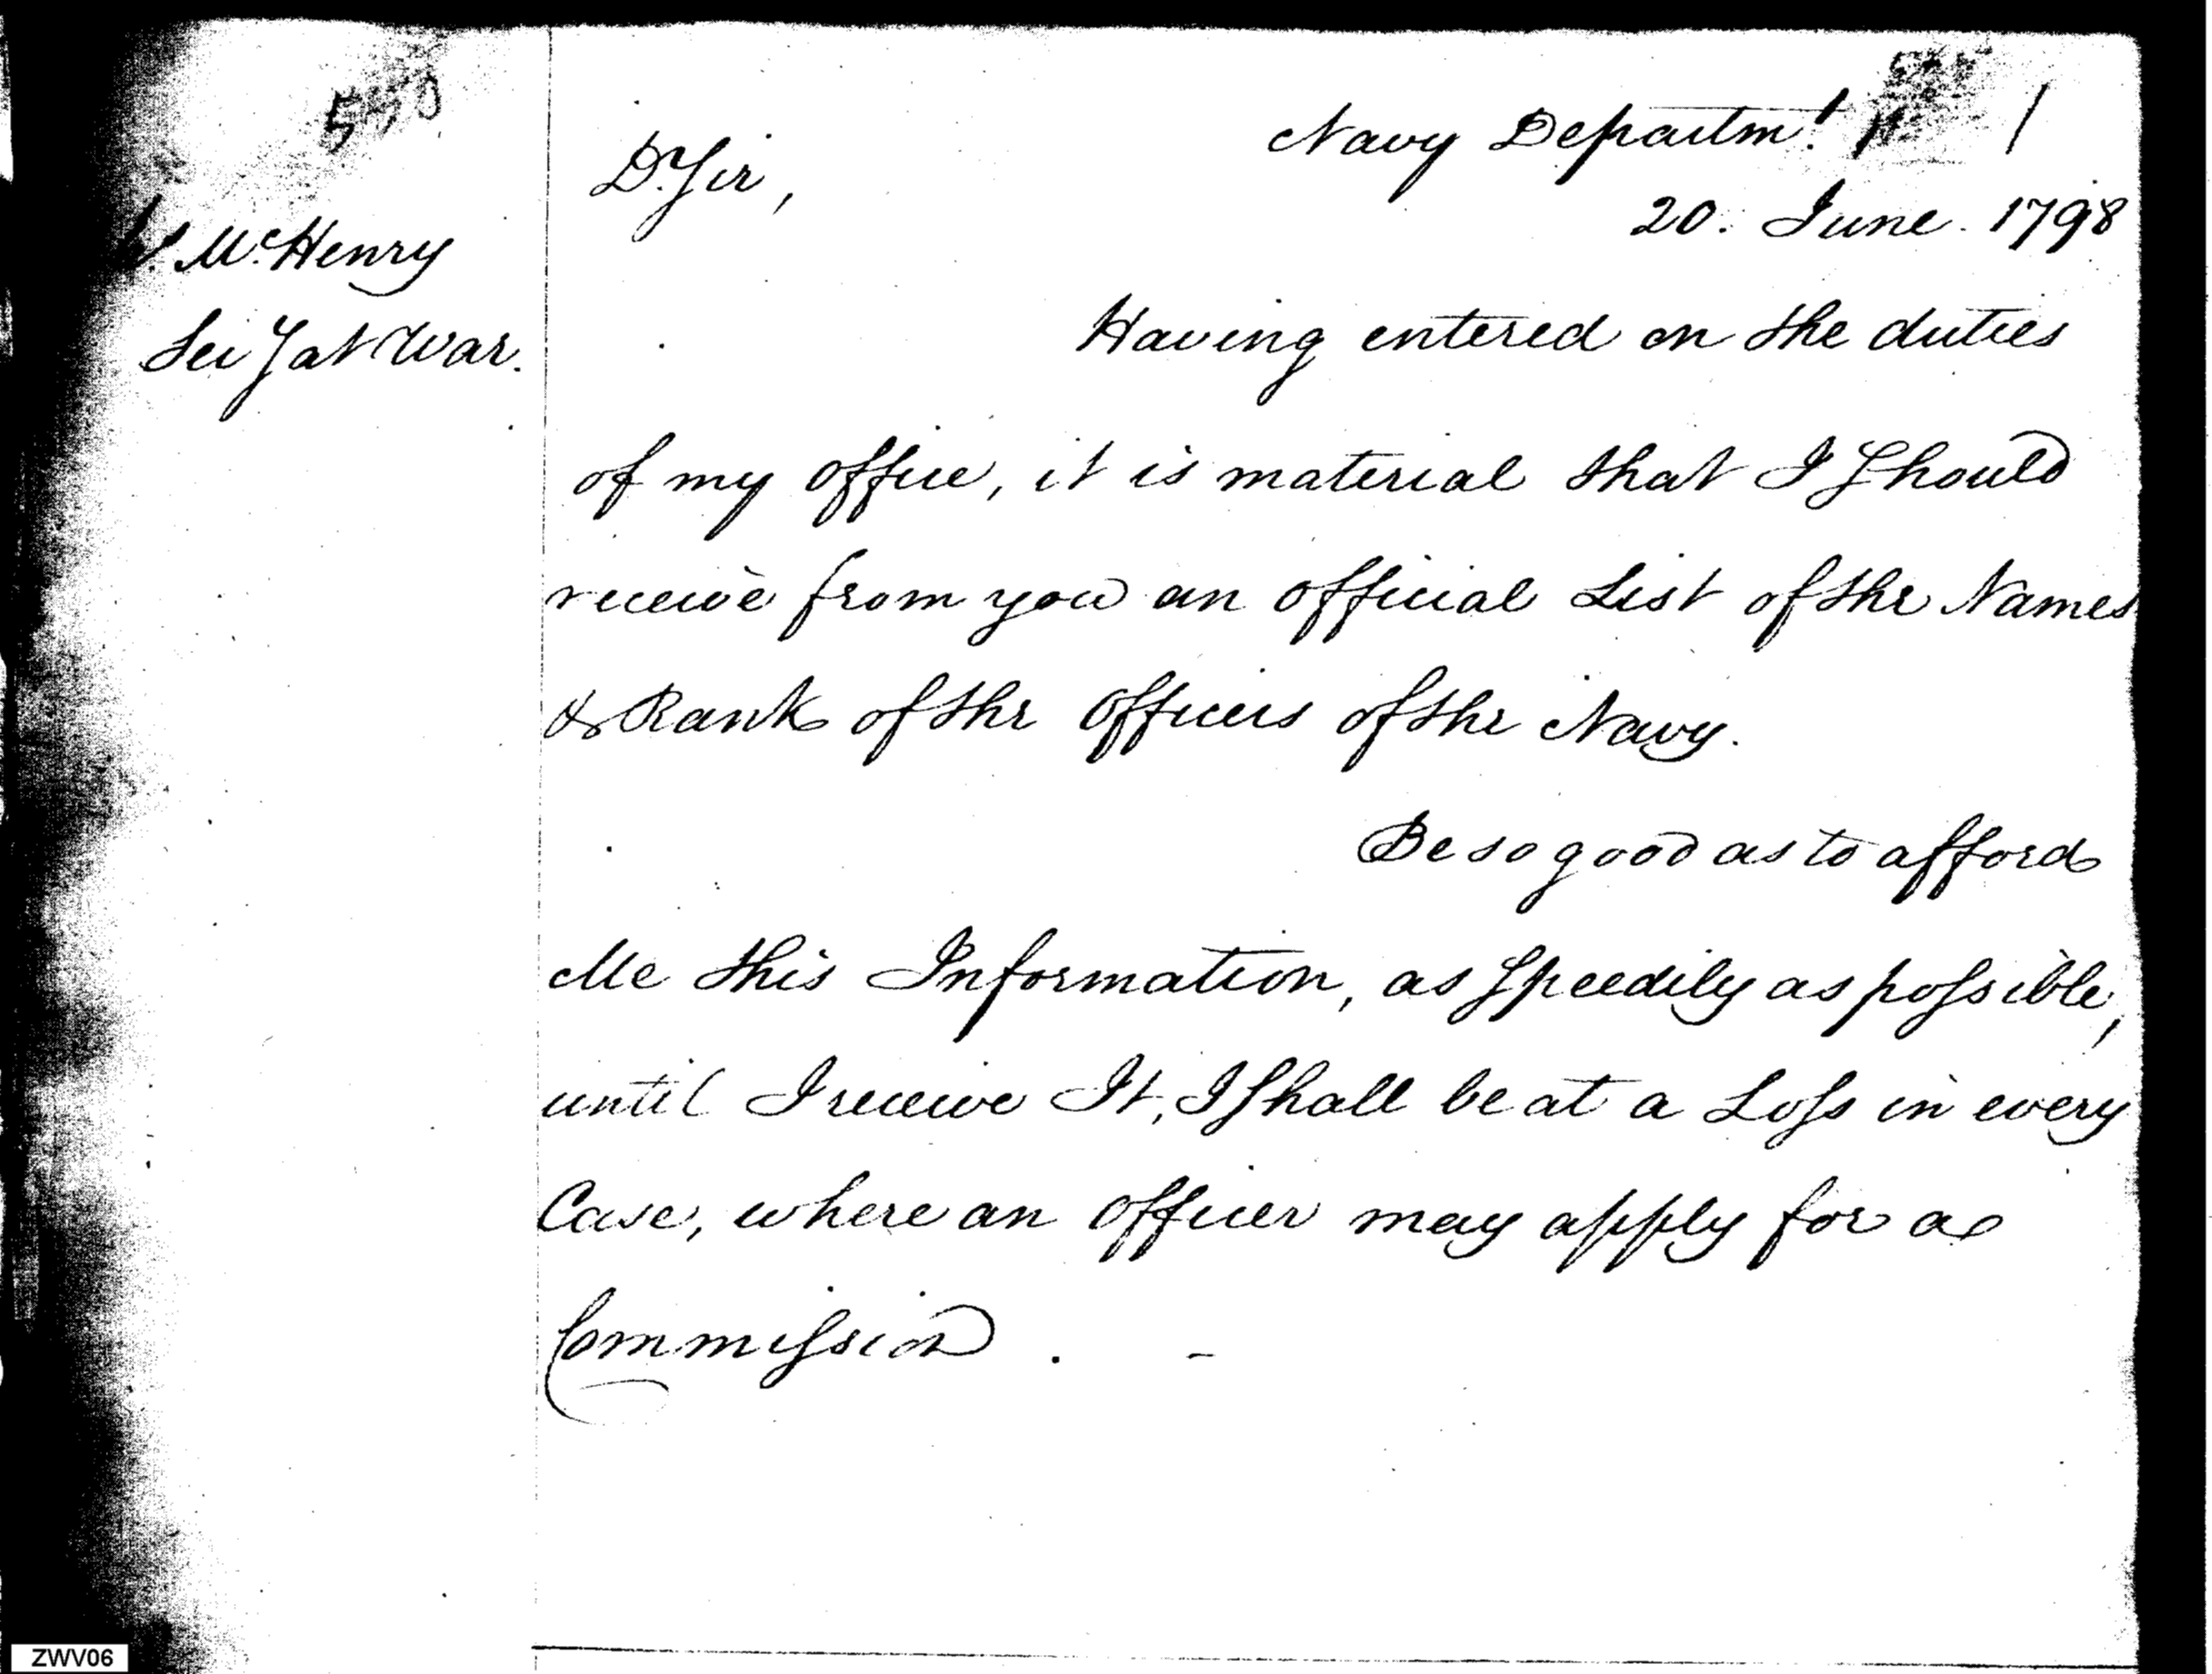 570
Navy Departmt. 1
Dr. Sir,
20. June. 1798
McHenry
Secy at War.
Having entered on the duties
of my office, it is material that I Should
receive from you an official List of the Names
& Rank of the officers of the Navy.
Be so good as to afford
Me this Information, as Speedily as possible,
until I receive It, I Shall be at a Loss in every
Case, where an officer may apply for a
Commission . -
ZWV06